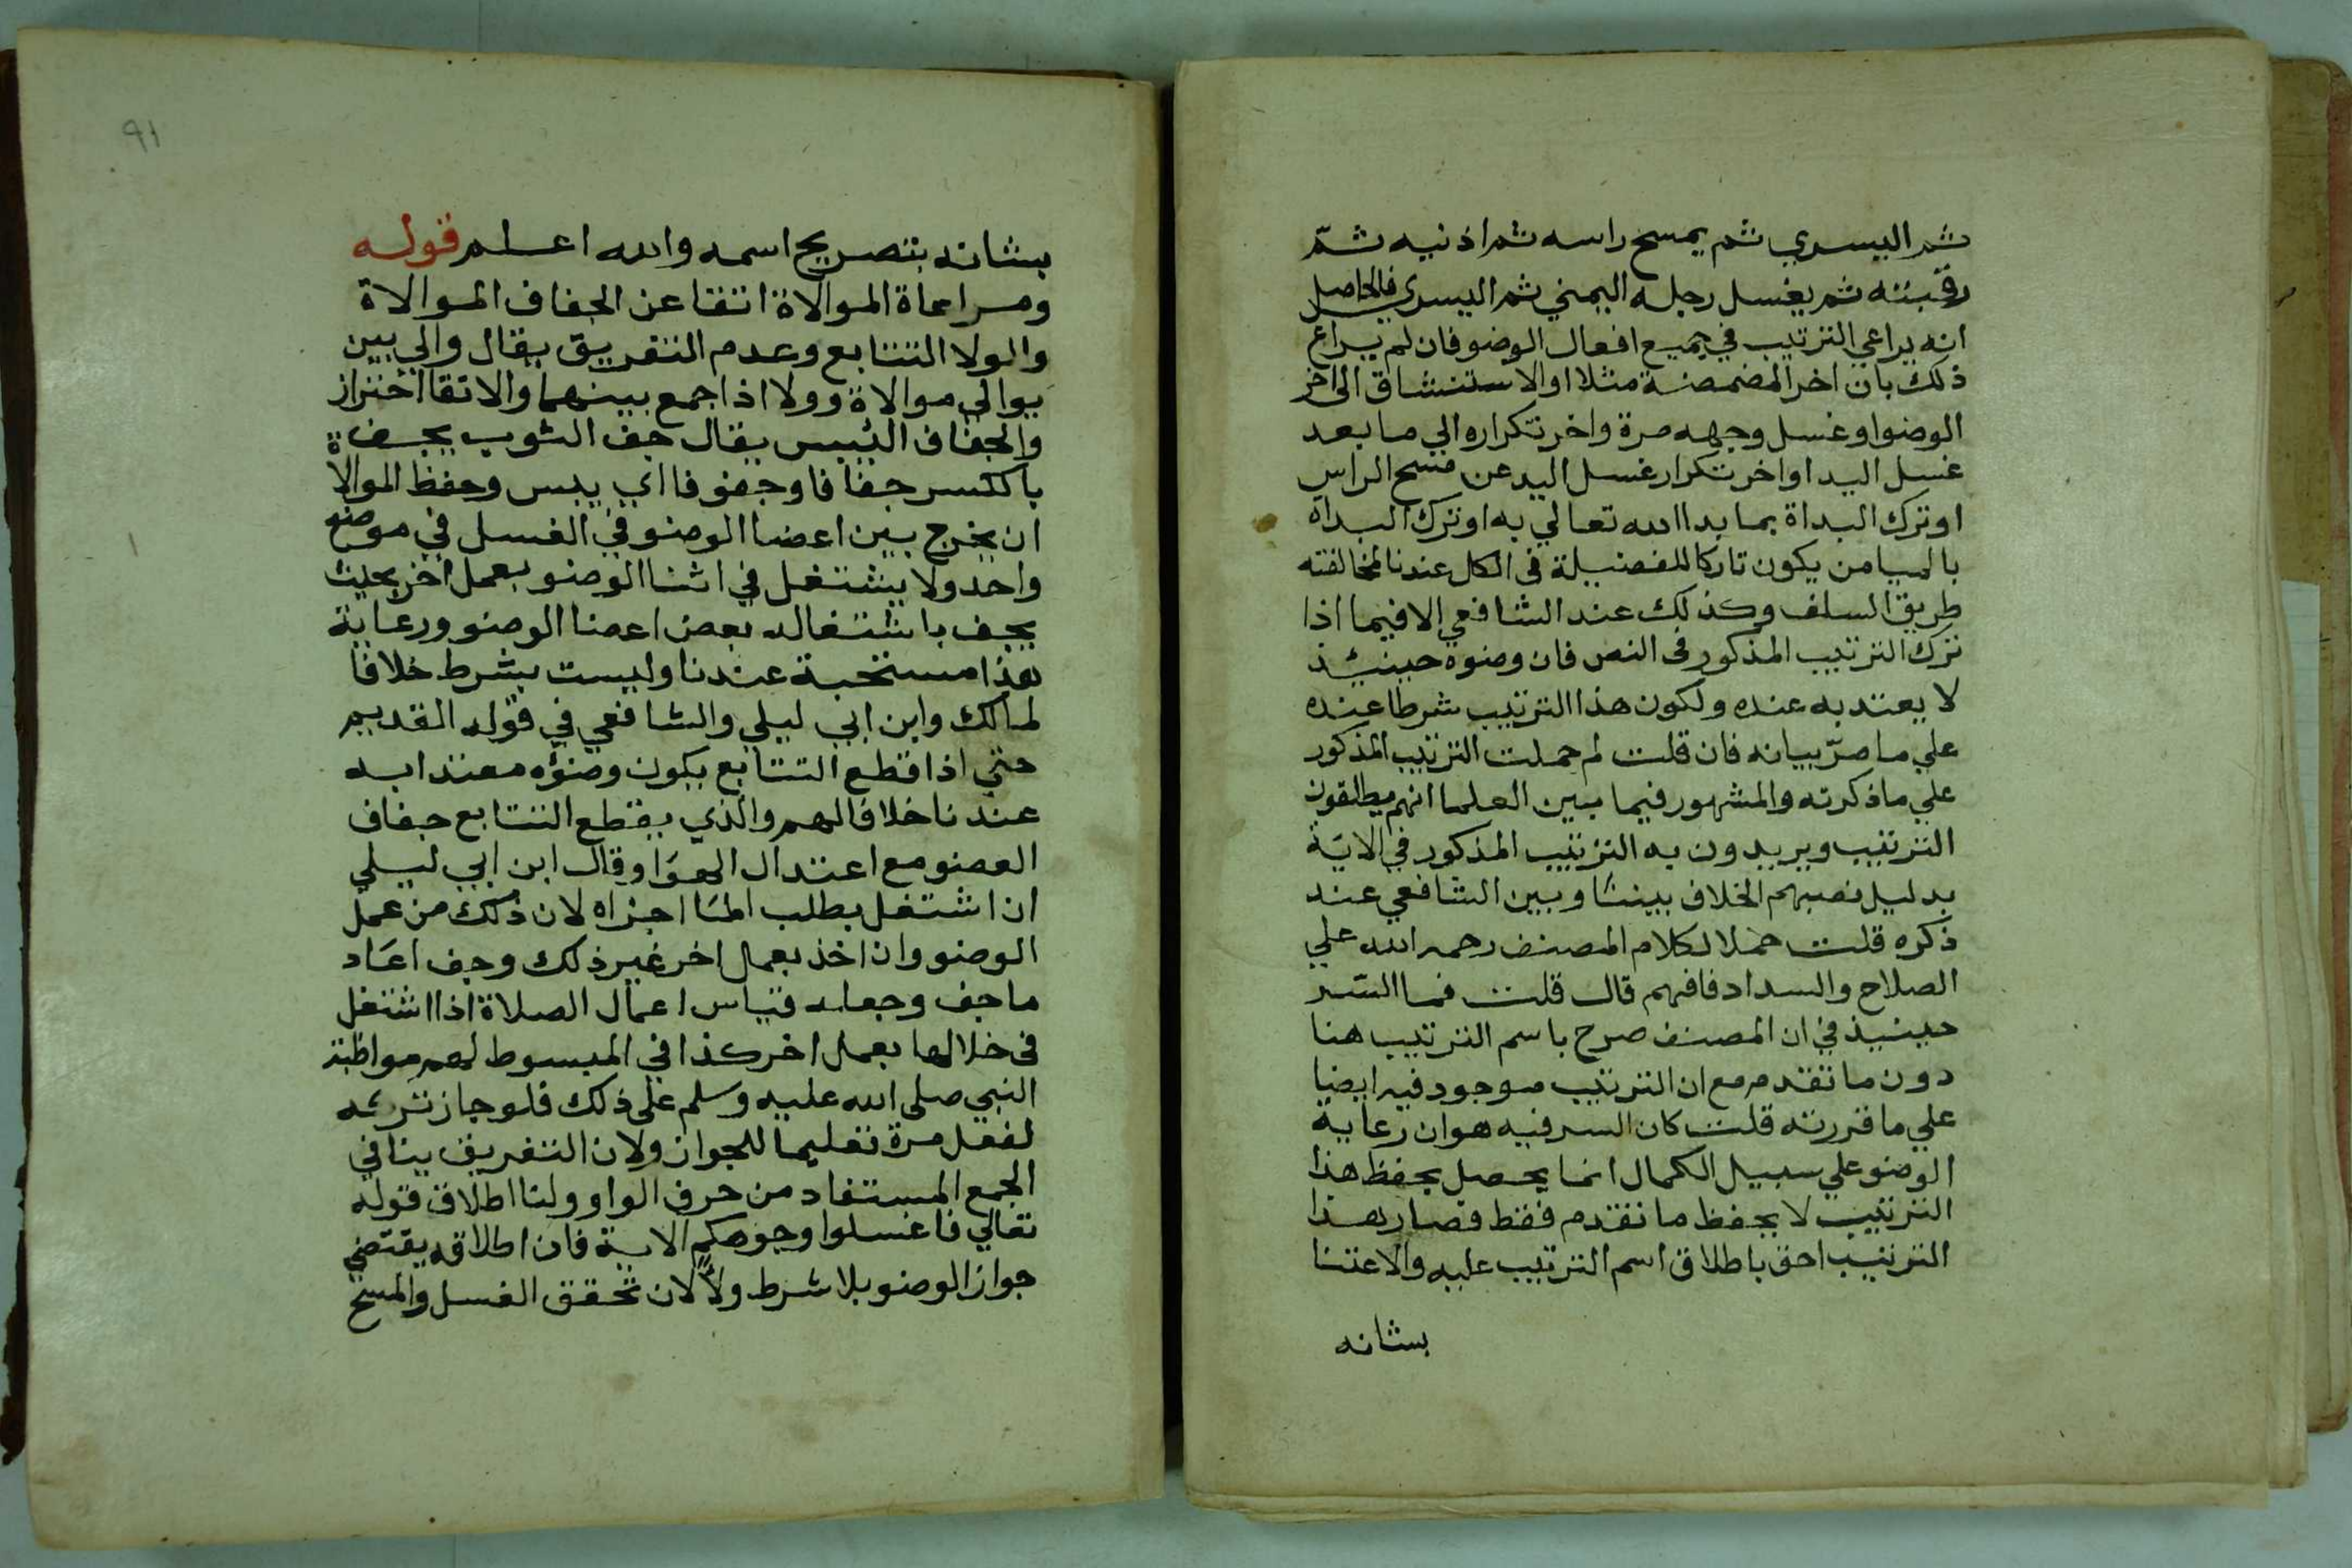 ثم اليسري ثم يمسح راسه ثم اذنيه ثمّ
رقبته ثم يغسل رجله اليمني ثم اليسري فالحاصل
انه يراعي الترتيب في جميع افعال الوضو فان لم يراع
ذلك بان اخر المضمضة مثلا او الاستنشاق الى اخر
الوضوا وغسل وجهه مرة واخر تكراره الي ما بعد
غسل اليد او اخر تكرار غسل اليد عن مسح الراس
او ترك البداة بما بدا الله تعالي به او ترك البداة
بالميامن يكون تاركا للفضيلة فى الكل عندنا لمخالفته
طريق السلف وكذلك عند الشافعي الا فيما اذا
ترك الترتيب المذكور فى النص فان وضوه حينئذ
لا يعتد به عنده ولكون هذا الترتيب شرطا عنده
علي ما مرّ بيانه فان قلت لم حملت الترتيب المذكور
علي ما ذكرته والمشهور فيما بين العلما انهم يطلقون
الترتيب ويريدون به الترتيب المذكور في الاية
بدليل نصبهم الخلاف بيننا وبين الشافعي عند
ذكره قلت حملا لكلام المصنف رحمه الله علي
الصلاح والسداد فافهم قال قلت فما السّر
حينيذ في ان المصنف صرح باسم الترتيب هنا
دون ما تقدم مع ان الترتيب موجود فيه ايضا
علي ما قررته قلت كان السر فيه هو ان رعاية
الوضو علي سبيل الكمال انما يحصل بحفظ هذا
الترتيب لا بحفظ ما تقدم فقط فصار هذا
الترتيب احق باطلاق اسم الترتيب عليه والاعتنا
بشانه
٩١
بشانه بتصريح اسمه والله اعلم قوله
ومراعاة الموالاة اتقا عن الجفاف الموالاة
والولا التتابع وعدم التفريق يقال والي بين
يوالي موالاة وولا اذا جمع بينهما والاتقا احتراز
والجفاف اليبس يقال جف الثوب يجف
بالكسر جفافا وجفوفا اي يبس وحفظ الموالاة
ان يخرج بين اعضا الوضو في الغسل في موضع
واحد ولا يشتغل في اثنا الوضو بعمل اخر بحيث
يجف باشتغاله بعض اعضا الوضو ورعاية
هذا مستحبة عندنا وليست بشرط خلافا
لمالك وابن ابي ليلي والشافعي في قوله القديم
حتي اذا قطع التتابع يكون وضوؤه معتدا به
عندنا خلافا لهم والذي يقطع التتابع جفاف
العضو مع اعتدال الهوا وقال ابن ابي ليلي
ان اشتغل بطلب الما اجزاه لان ذلك من عمل
الوضو وان اخذ بعمل اخر غير ذلك وجف اعاد
ما جف وجعله قياس اعمال الصلاة اذا اشتغل
فى خلالها بعمل اخر كذا في المبسوط لهم مواظبة
النبي صلى الله عليه وسلم على ذلك فلو جاز تركه
لفعل مرة تعليما للجواز ولان التفريق ينافي
الجمع المستفاد من حرف الواو ولنا اطلاق قوله
تعالي فاغسلوا وجوهكم الاية فان اطلاقه يقتضي
جواز الوضو بلا شرط ولا لان تحقق الغسل والمسح